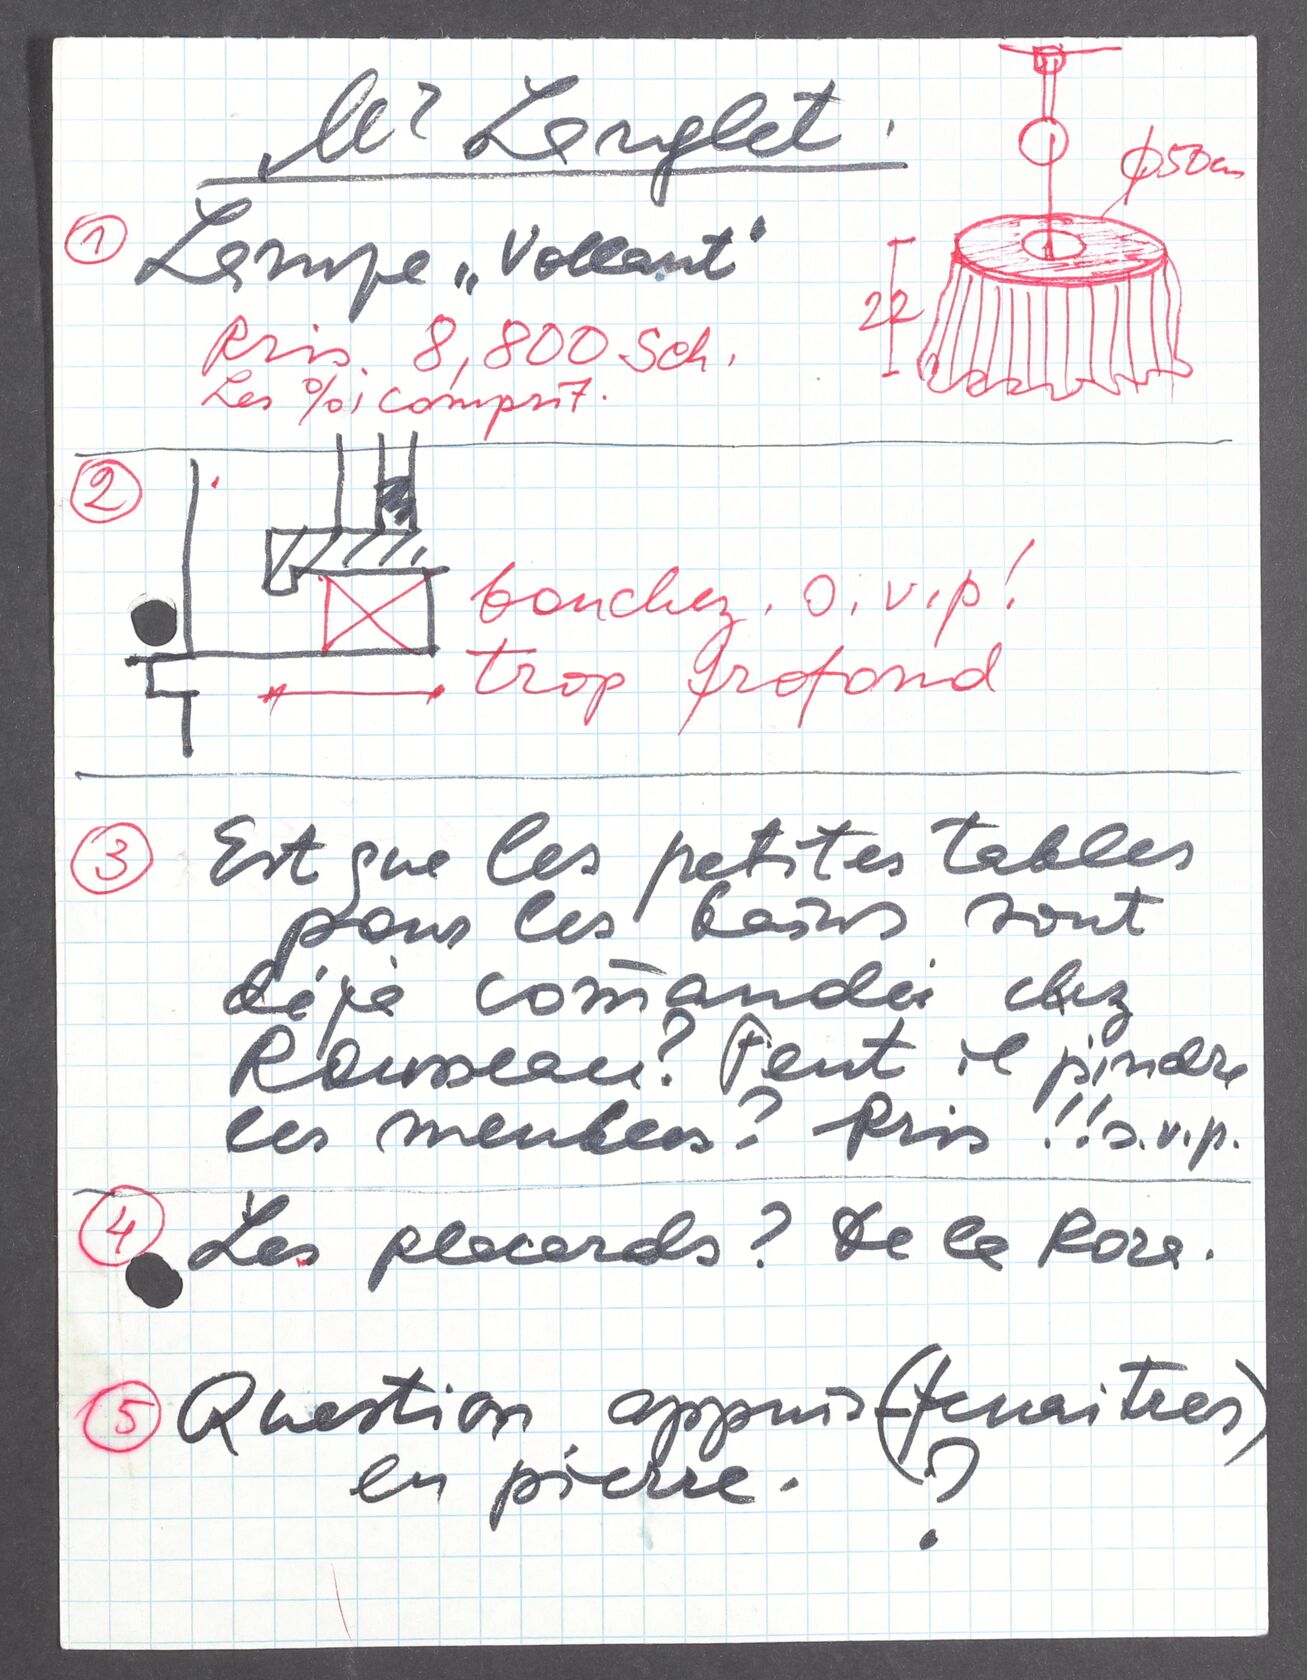 Mr Lenglet.
① Lampe „Vollant"
∅50cm
22
Pris 8,800 Sch.
Les % i comprit.
②
bouchez. s.v.p!
trop profond
③ Est que les petites tables
pour les bains sont
déjà com̄andéi chez
Rousseau? Peut il pindre
les meubles? Pris !! s.v.p.
④ Les placards? De la Roza.
⑤ Question appuis (fenaitres)
en pierre. ?